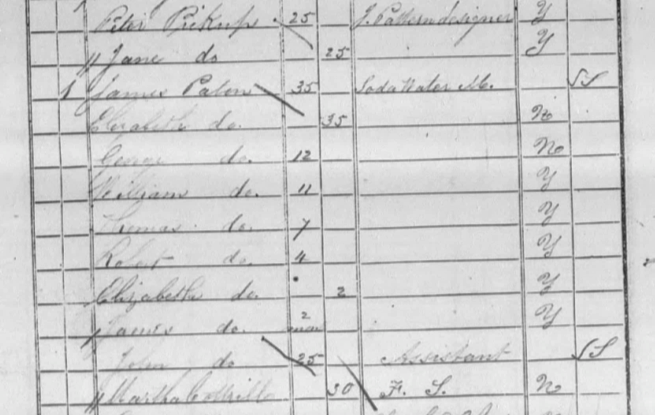 Peter Pickup 25 J. Pattern designer Y
Jane do 25 Y
1 James Paton 35 Soda Water M. SS
Elizabeth do. 35 N
George do. 12 No
William do. 11 Y
Thomas do. 7 Y
Robert do. 4 Y
Elizabeth do. 2 Y
James do. 2 Y
John do 25 Assistant SS
Martha 30 F. S. N